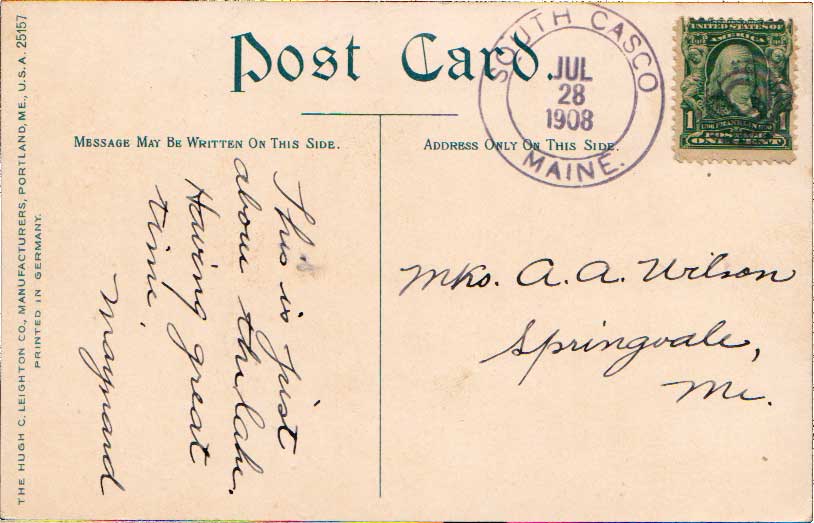 Post Card.
SOUTH CASCO
JUL
28
1908
MAINE.
UNITED STATES OF
AMERICA
1 1
POSTAGE
ONE CENT
MESSAGE MAY BE WRITTEN ON THIS SIDE.
ADDRESS ONLY ON THIS SIDE.
This is just
above the lake.
Having great
time.
Maynard
Mrs. A. A. Wilson
Springvale,
Me.
THE HUGH C. LEIGHTON CO., MANUFACTURERS, PORTLAND, ME., U.S.A. 25157
PRINTED IN GERMANY.